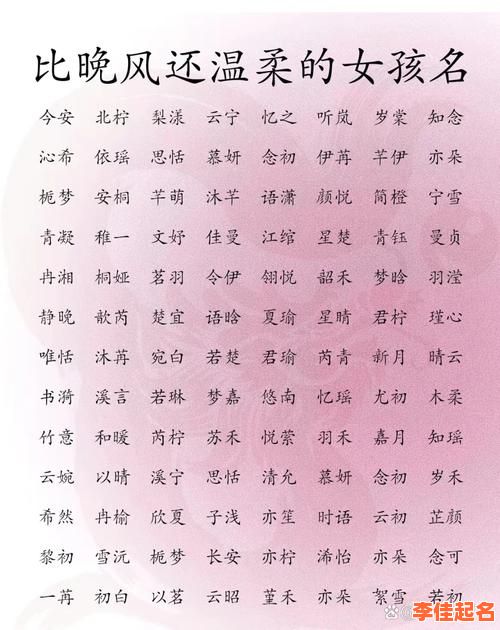 比晚风还温柔的女孩名
今安 北柠 梨漾 云宁 忆之 听岚 岁棠 知念
沁希 依瑶 思恬 慕妍 念初 伊苒 芊伊 亦朵
栀梦 安桐 芊萌 沐芊 语潇 颜悦 简橙 宁雪
青凝 稚一 文妤 佳曼 江绾 星楚 青钰 曼贞
冉湘 桐娅 茗羽 令伊 翎悦 韶禾 梦晗 羽滢
静晚 歆芮 楚宜 语晗 夏瑜 星晴 君柠 瑾心
唯恬 沐苒 宛白 若楚 君瑜 芮青 新月 晴云
书漪 溪言 若琳 梦嘉 悠南 忆瑶 尤初 木柔
竹意 和暖 芮柠 苏禾 悦萦 羽禾 嘉月 知瑶
云婉 以晴 溪宁 思恬 清允 慕妍 念初 岁禾
希然 冉榆 欣夏 子浅 亦笙 时语 云初 芷颜
黎初 雪沅 栀梦 长安 亦柠 浠怡 亦朵 念可
一苒 初白 以茗 云昭 堇禾 亦朵 絮雪 若初
李佳起名